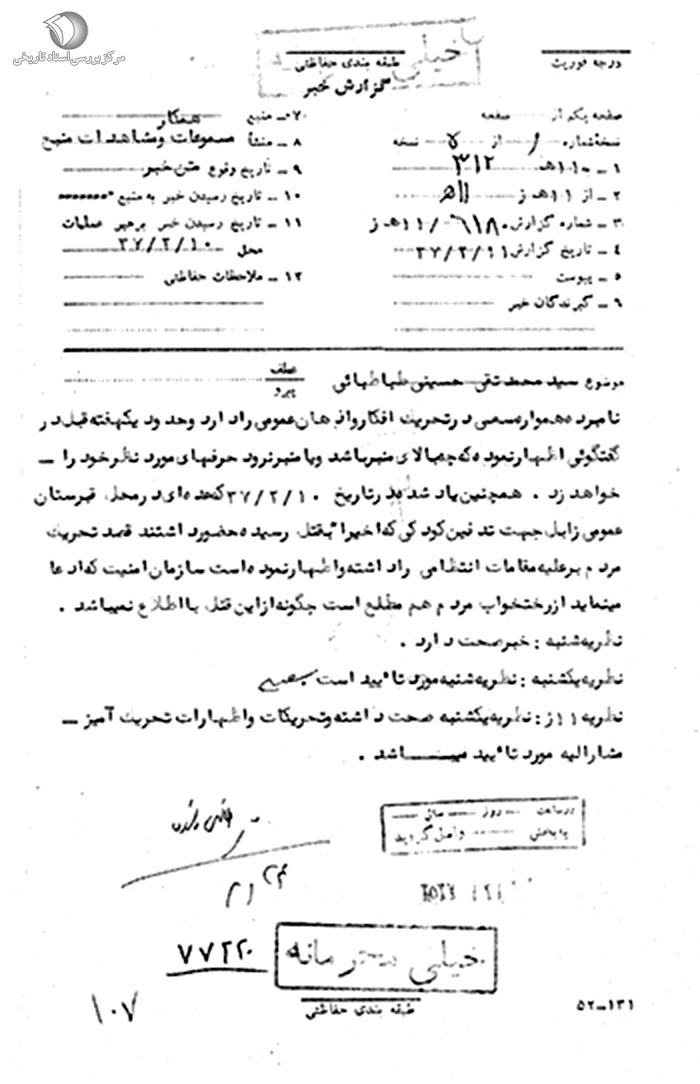 مرکز بررسی اسناد تاریخی
خیلی محرمانه
درجه فوریت
طبقه بندی حفاظتی
گزارش خبر
صفحه یکم از صفحه
نسخه شماره ۱ از ۵ نسخه
۱ – به ۱۱۰ هـ ۳۱۲
۲ – از ۱۱ هـ ز ۱۱ هـ
۳ – شماره گزارش ۶۱۸۰/ ۱۱ هـ ز
۴ – تاریخ گزارش ۳۷/۲/۱۱
۵ – پیوست
۶ – گیرندگان خبر
۷ – منبع همکار
۸ – منشأ مسموعات و مشاهدات منبع
۹ – تاریخ وقوع متن خبر
۱۰ – تاریخ رسیدن خبر به منبع
۱۱ – تاریخ رسیدن خبر برهبر عملیات
محل ۳۷/۲/۱۰
۱۲ – ملاحظات حفاظتی
موضوع سید محمد تقی حسینی طباطبائی
عطف
پیرو
نامبرده همواره سعی در تحریک افکار و اذهان عمومی را دارد و حدود یکهفته قبل در
گفتگوئی اظهار نموده که چه بالای منبر باشد و یا منبر نرود حرفهای مورد نظر خود را –
خواهد زد . همچنین یاد شده در تاریخ ۳۷/۲/۱۰ که عده ای در محل قبرستان
عمومی زابل جهت تدفین کودکی که اخیرا" بقتل رسیده حضور داشتند قصد تحریک
مردم بر علیه مقامات انتظامی را داشته و اظهار نموده است سازمان امنیت که ادعا
مینماید از رختخواب مردم هم مطلع است چگونه از این قتل با اطلاع نمیباشد .
نظریه شنبه : خبر صحت دارد .
نظریه یکشنبه : نظریه شنبه مورد تائید است
نظریه ۱۱ ز : نظریه یکشنبه صحت داشته و تحریکات و اظهارات تحریک آمیز –
مشارالیه مورد تائید میباشد .
در ساعت روز سال
به بخش واصل گردید
۷۷۲۲۰
خیلی محرمانه
طبقه بندی حفاظتی
۱۰۷
۵۲–۱۳۱